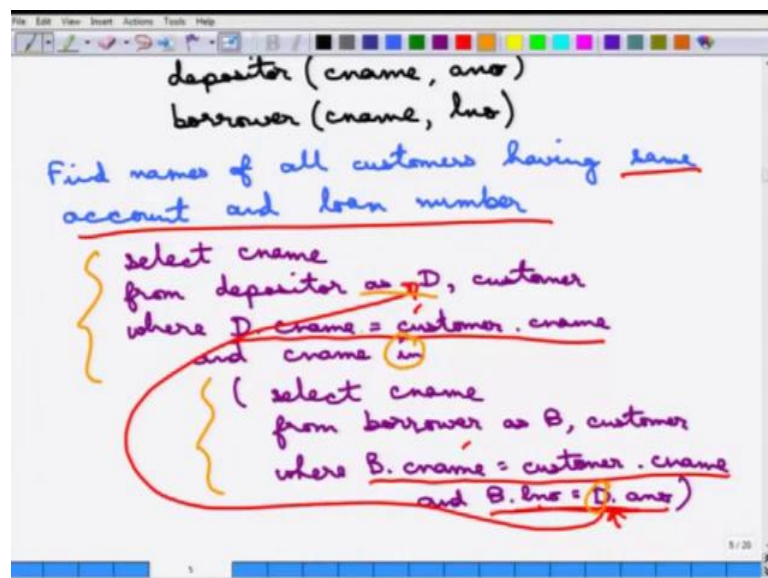 File Edit View Insert Actions Tools Help
depositor (cname, ano)
borrower (cname, lno)
Find names of all customers having same
account and loan number
select cname
from depositor as D, customer
where D. cname = customer . cname
and cname in
( select cname
from borrower as B, customer
where B. cname = customer . cname
and B. lno = D. ano )
5 / 20
5